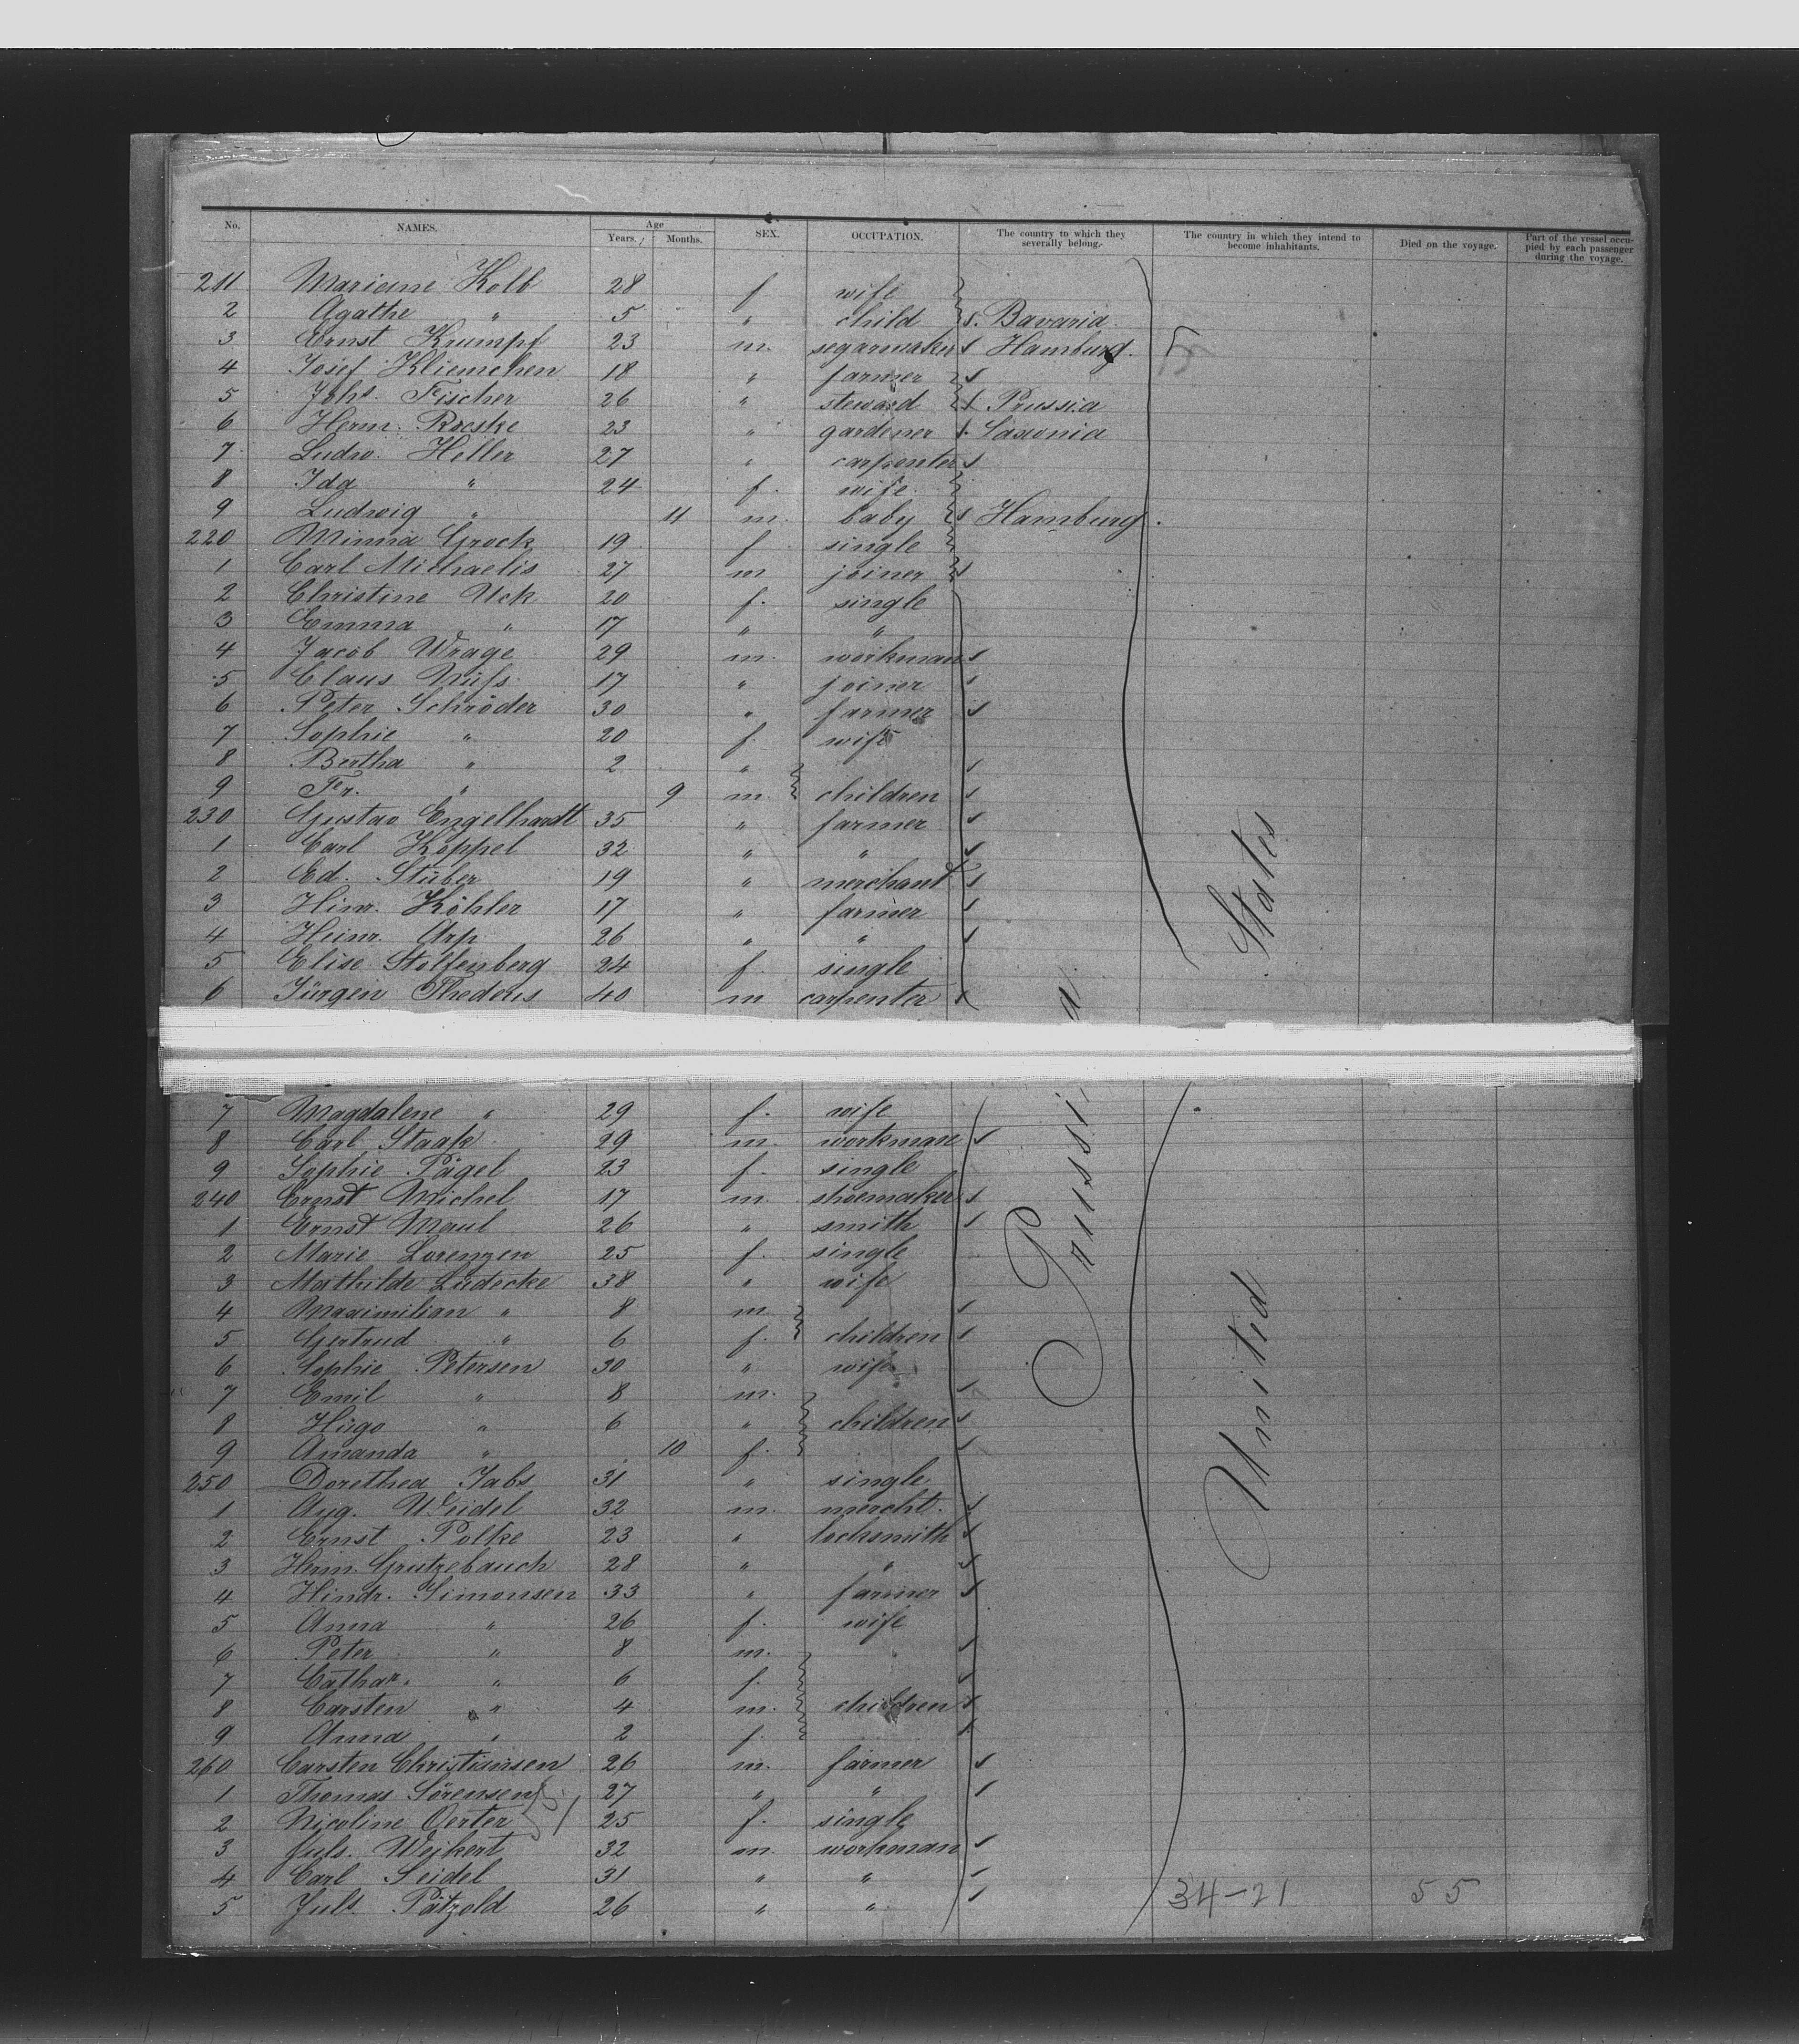 No. NAMES. Age Years. Months. SEX. OCCUPATION. The country to which they severally belong. The country in which they intend to become inhabitants. Died on the voyage. Part of the vessel occupied by each passenger during the voyage.
211 Mariane Kolb 28 f wife
2 Agathe " 5 " child Bavaria
3 Ernst Krumpf 23 m. segarmaker Hamburg.
4 Josef Kliemchen 18 " farmer
5 Johs. Fischer 26 " steward Prussia
6 Herm. Roeske 23 " gardener Saxonia
7 Ludw. Heller 27 " carpenter
8 Ida " 24 f. wife
9 Ludwig " 11 m. baby Hamburg.
220 Minna Grock 19 f single
1 Carl Michaelis 27 m joiner
2 Christine Uck 20 f. single
3 Emma " 17 " "
4 Jacob Wrage 29 m. workman
5 Claus Nüfs 17 " joiner
6 Peter Schröder 30 " farmer
7 Sophie " 20 f. wife
8 Bertha " 2 "
9 Fr. " 9 m. children
230 Gustav Engelhardt 35 " farmer
1 Carl Köppel 32 " "
2 Ed. Stüber 19 " merchant
3 Hinr. Köhler 17 " farmer
4 Heinr. Arp 26 " "
5 Elise Stolfenberg 24 f. single
6 Jürgen Thedens 40 m carpenter
7 Magdalene " 29 f. wife
8 Carl Staak 29 m. workman
9 Sophie Pägel 23 f. single
240 Ernst Michel 17 m. shoemaker
1 Ernst Maul 26 " smith
2 Marie Lorenzen 25 f. single
3 Mathilde Lüdecke 38 " wife
4 Maximilian " 8 m.
5 Gertrud " 6 f. children
6 Sophie Petersen 30 " wife
7 Emil " 8 m.
8 Hügo " 6 " children
9 Amanda " 10 f.
250 Dorethea Jabs 31 " single
1 Aug. Weidel 32 m. mercht.
2 Ernst Polke 23 " locksmith
3 Herm. Grützebauch 28 " "
4 Hindr. Simonsen 33 " farmer
5 Anna " 26 f. wife
6 Peter " 8 m.
7 Cathar. " 6 f.
8 Carsten " 4 m. children
9 Anna " 2 f.
260 Carsten Christiansen 26 m. farmer
1 Thomas Sörensen 27 " "
2 Nicoline Oerter 25 f. single
3 Juls. Weikert 32 m. workman
4 Carl Seidel 31 " "
5 Juls. Pätzold 26 " "
Prussia
United States
34-21 55